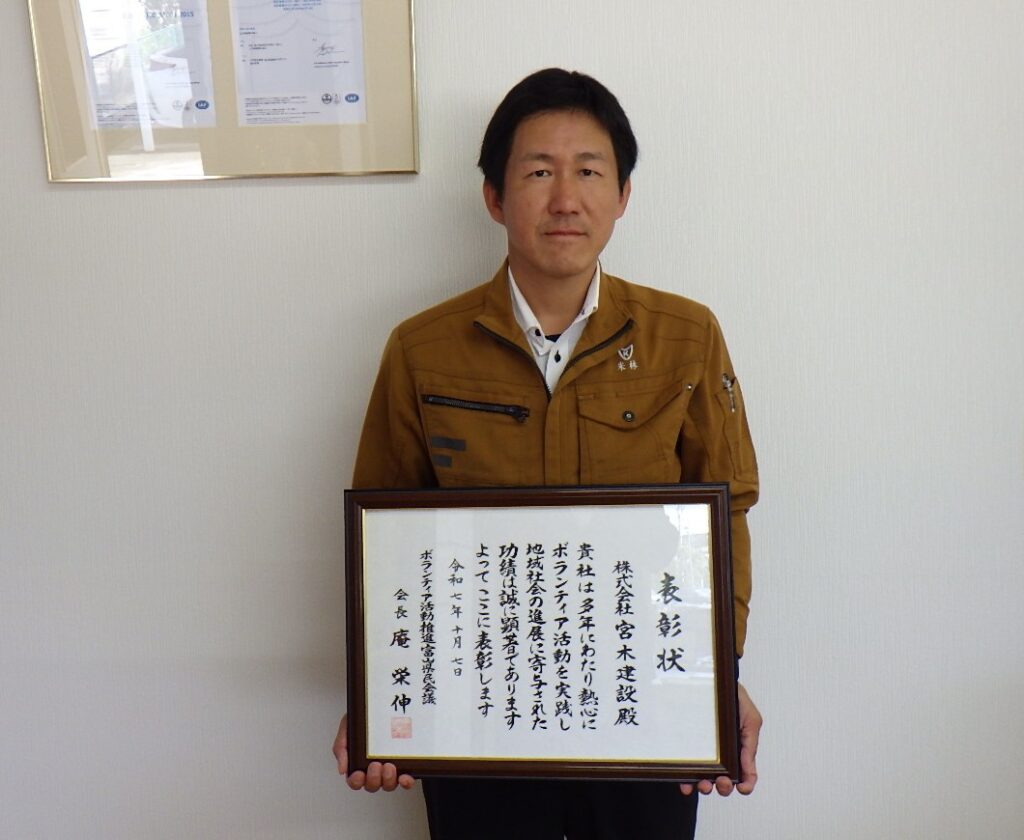 表彰状
株式会社 宮木建設 殿
貴社は多年にわたり熱心に
ボランティア活動を実践し
地域社会の進展に寄与された
功績は誠に顕著であります
よってここに表彰します
令和七年十月七日
ボランティア活動推進富山県民会議
会長 庵 栄伸
米林
IAF
IAF